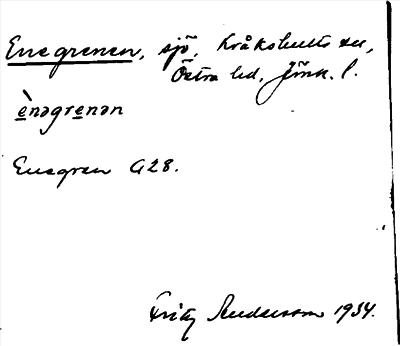 Enegrenen, sjö, Kråkshults sn,
Östra hd, Jönk. l.
ènəgrenən
Enegren G28.
Fritz Anderson 1934.